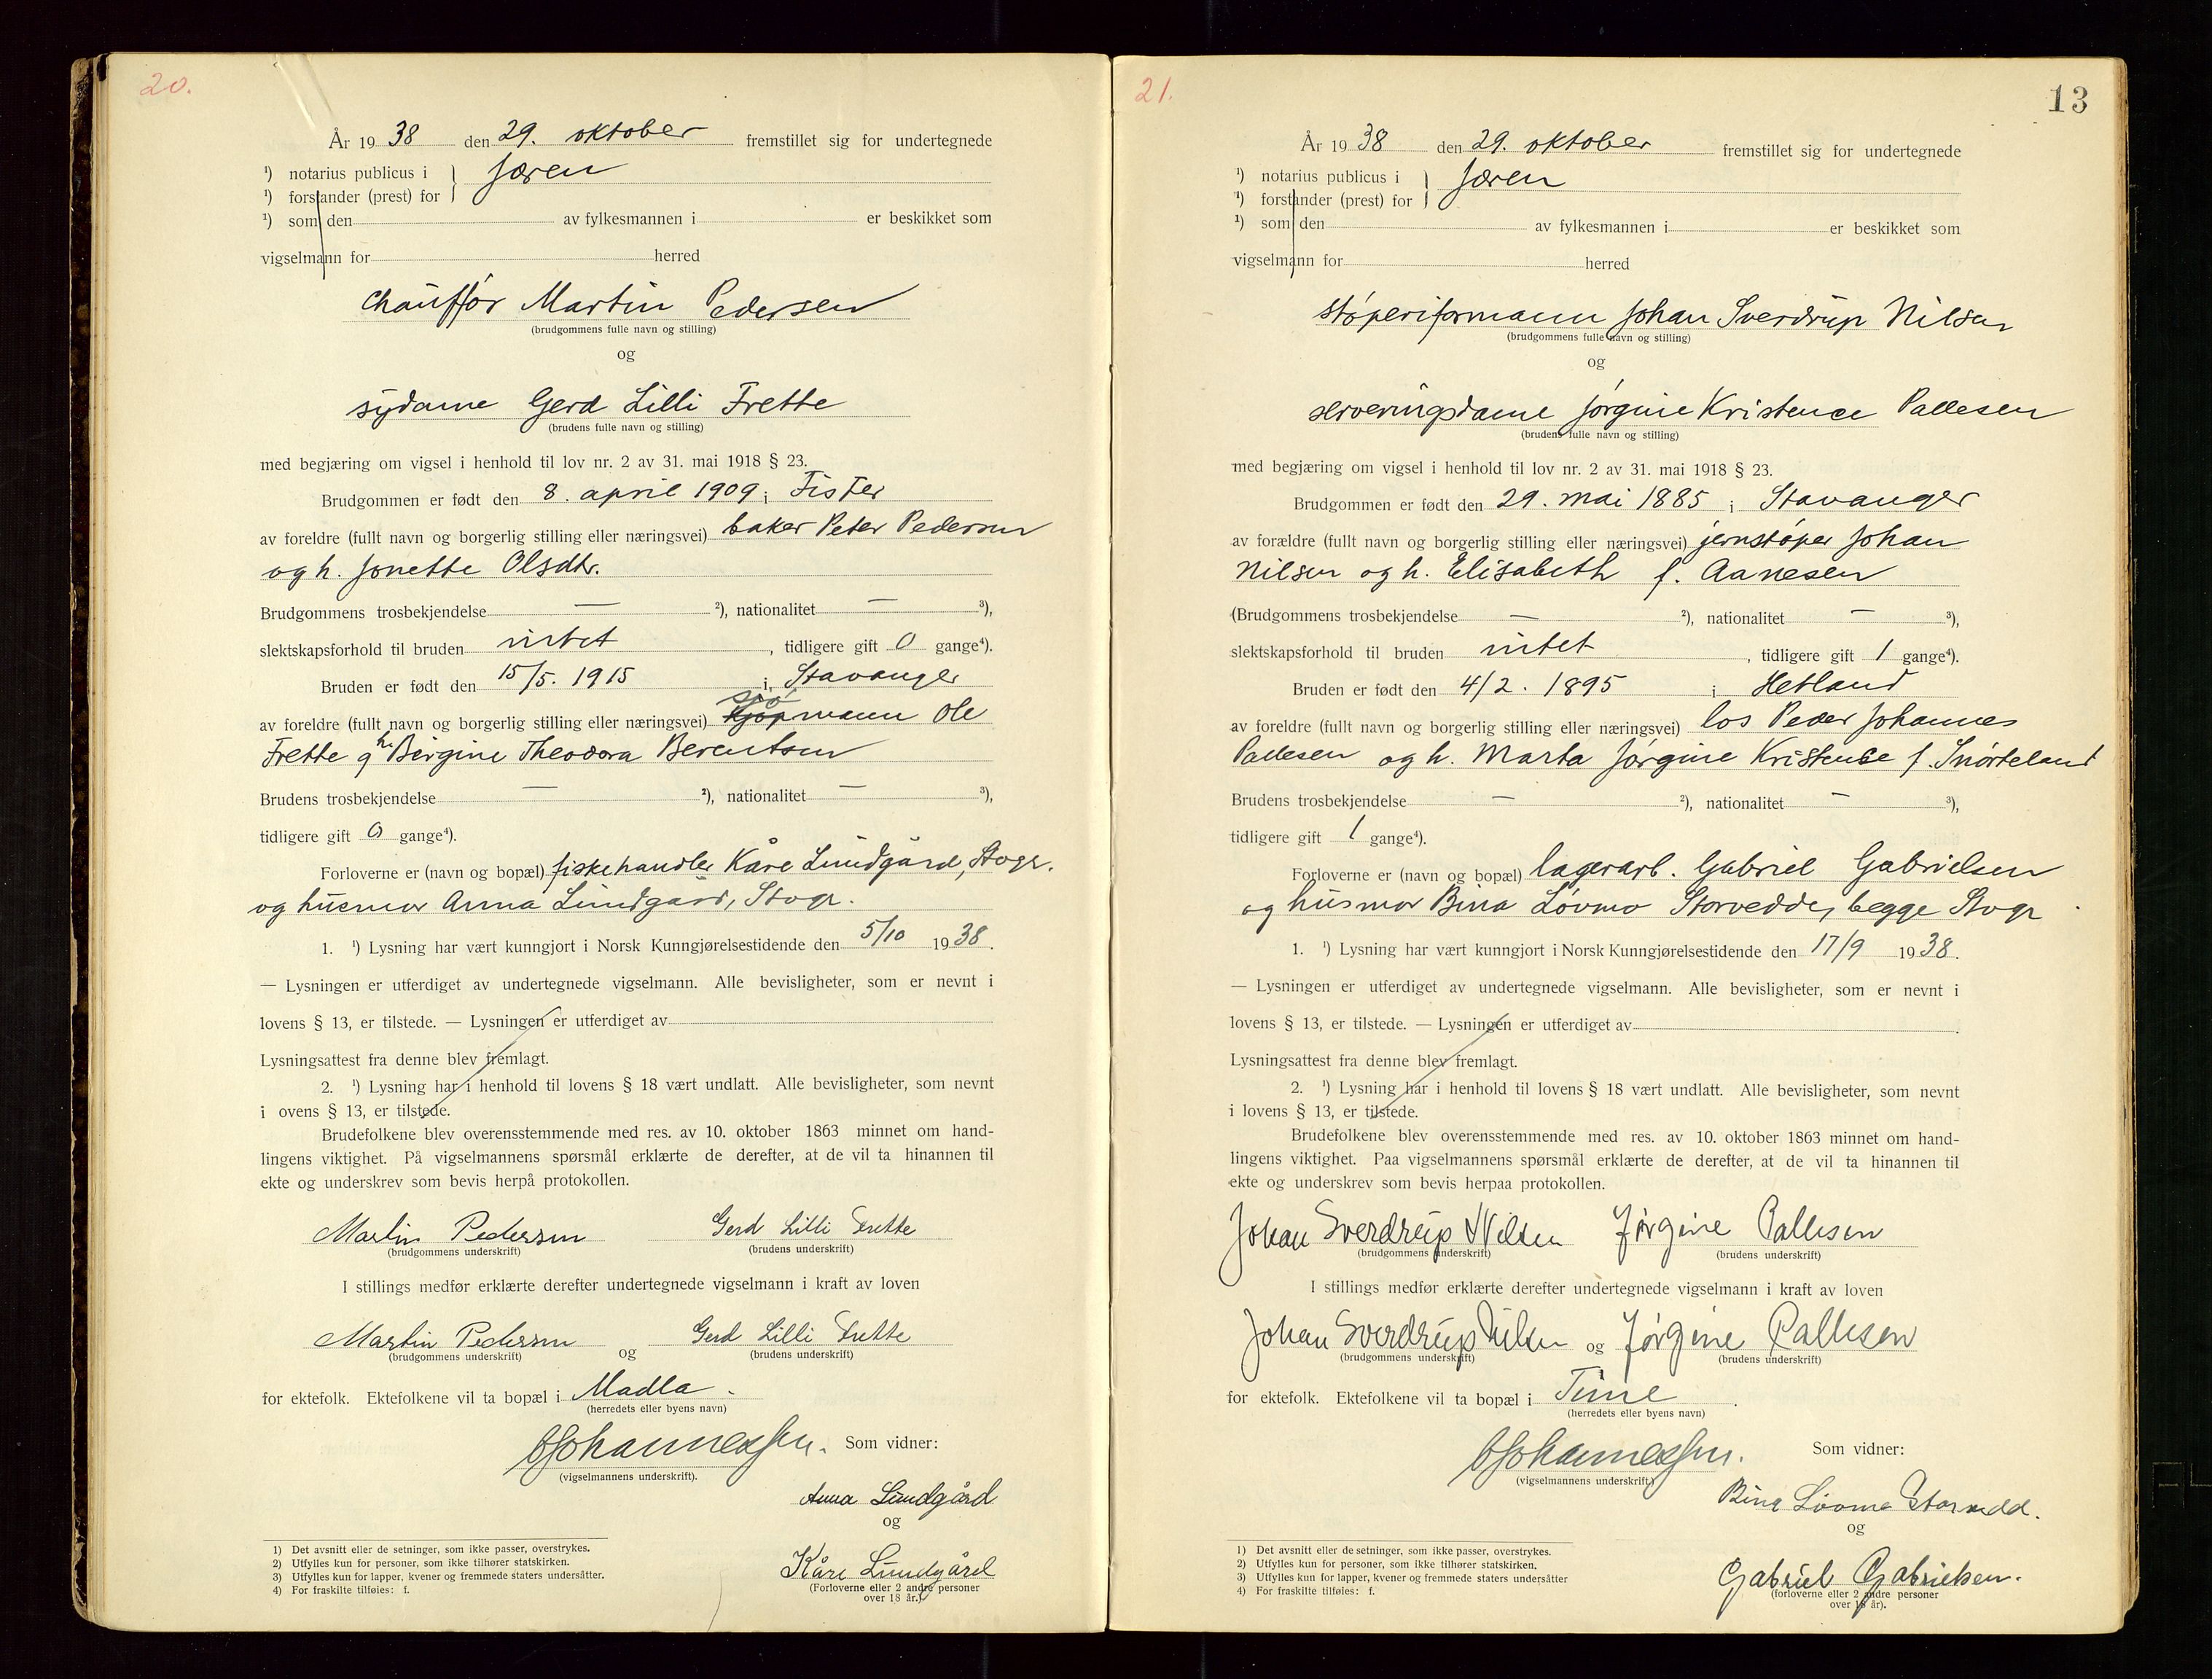 20.
År 1938 den 29. oktober fremstillet sig for undertegnede
¹) notarius publicus i } Jæren
¹) forstander (prest) for
¹) som den av fylkesmannen i er beskikket som
vigselmann for herred
chauffør Martin Pedersen
(brudgommens fulle navn og stilling)
og
sydame Gerd Lilli Frette
(brudens fulle navn og stilling)
med begjæring om vigsel i henhold til lov nr. 2 av 31. mai 1918 § 23.
Brudgommen er født den 8. april 1909 i Fister
av foreldre (fullt navn og borgerlig stilling eller næringsvei) baker Peter Pedersen
og h. Jonette Olsdtr.
Brudgommens trosbekjendelse — ²), nationalitet — ³),
slektskapsforhold til bruden intet, tidligere gift 0 gange⁴).
Bruden er født den 15/5. 1915 i Stavanger
sjø
av foreldre (fullt navn og borgerlig stilling eller næringsvei) kjøpmann Ole
Frette og h. Bergine Theodora Berentsen
Brudens trosbekjendelse — ²), nationalitet — ³),
tidligere gift 0 gange⁴).
Forloverne er (navn og bopæl) fiskehandler Kåre Lundgård, Stvgr.
og husmor Anna Lundgård, Stvgr.
1. ¹) Lysning har vært kunngjort i Norsk Kunngjørelsestidende den 5/10 1938.
— Lysningen er utferdiget av undertegnede vigselmann. Alle bevisligheter, som er nevnt i
lovens § 13, er tilstede. — Lysningen er utferdiget av
Lysningsattest fra denne blev fremlagt.
2. ¹) Lysning har i henhold til lovens § 18 vært undlatt. Alle bevisligheter, som nevnt
i ovens § 13, er tilstede.
Brudefolkene blev overensstemmende med res. av 10. oktober 1863 minnet om hand-
lingens viktighet. På vigselmannens spørsmål erklærte de derefter, at de vil ta hinannen til
ekte og underskrev som bevis herpå protokollen.
Martin Pedersen Gerd Lilli Frette
(brudgommens underskrift) (brudens underskrift)
I stillings medfør erklærte derefter undertegnede vigselmann i kraft av loven
Martin Pedersen og Gerd Lilli Frette
(brudgommens underskrift) (brudens underskrift)
for ektefolk. Ektefolkene vil ta bopæl i Madla.
(herredets eller byens navn)
Johannessen. Som vidner:
(vigselmannens underskrift).
Anna Lundgård
og
Kåre Lundgård
(Forloverne eller 2 andre personer
over 18 år.)
1) Det avsnitt eller de setninger, som ikke passer, overstrykes.
2) Utfylles kun for personer, som ikke tilhører statskirken.
3) Utfylles kun for lapper, kvener og fremmede staters undersåtter.
4) For fraskilte tilføies: f.
21.
13
År 1938 den 29. oktober fremstillet sig for undertegnede
¹) notarius publicus i } Jæren
¹) forstander (prest) for
¹) som den av fylkesmannen i er beskikket som
vigselmann for herred
støperiformann Johan Sverdrup Nilsen
(brudgommens fulle navn og stilling)
og
serveringsdame Jørgine Kristence Pallesen
(brudens fulle navn og stilling)
med begjæring om vigsel i henhold til lov nr. 2 av 31. mai 1918 § 23.
Brudgommen er født den 29. mai 1885 i Stavanger
av forældre (fullt navn og borgerlig stilling eller næringsvei) jernstøper Johan
Nilsen og h. Elisabeth f. Aanesen
(Brudgommens trosbekjendelse — ²), nationalitet — ³),
slektskapsforhold til bruden intet, tidligere gift 1 gange⁴).
Bruden er født den 4/2. 1895 i Hetland
av foreldre (fullt navn og borgerlig stilling eller næringsvei) los Peder Johannes
Pallesen og h. Marta Jørgine Kristence f. Snørteland
Brudens trosbekjendelse — ²), nationalitet — ³),
tidligere gift 1 gange⁴).
Forloverne er (navn og bopæl) lagerarb. Gabriel Gabrielsen
og husmor Bina Løvmo Storvedde, begge Stvgr
1. ¹) Lysning har vært kunngjort i Norsk Kunngjørelsestidende den 17/9 1938.
— Lysningen er utferdiget av undertegnede vigselmann. Alle bevisligheter, som er nevnt i
lovens § 13, er tilstede. — Lysningen er utferdiget av
Lysningsattest fra denne blev fremlagt.
2. ¹) Lysning har i henhold til lovens § 18 vært undlatt. Alle bevisligheter, som nevnt
i lovens § 13, er tilstede.
Brudefolkene blev overensstemmende med res. av 10. oktober 1863 minnet om hand-
lingens viktighet. Paa vigselmannens spørsmål erklærte de derefter, at de vil ta hinannen til
ekte og underskrev som bevis herpaa protokollen.
Johan Sverdrup Nilsen Jørgine Pallesen
(brudgommens underskrift) (brudens underskrift)
I stillings medfør erklærte derefter undertegnede vigselmann i kraft av loven
Johan Sverdrup Nilsen og Jørgine Pallesen
(brudgommens underskrift) (brudens underskrift)
for ektefolk. Ektefolkene vil ta bopæl i Time.
(herredets eller byens navn)
Johannessen. Som vidner:
(vigselmannens underskrift)
Bina Løvmo
og
Gabriel Gabrielsen.
(forloverne eller 2 andre personer
over 18 år).
1) Det avsnitt eller de setninger, som ikke passer, overstrykes.
2) Utfylles kun for personer, som ikke tilhører statskirken.
3) Utfylles kun for lapper, kvener og fremmede staters undersåtter
4) For fraskilte tilføies: f.